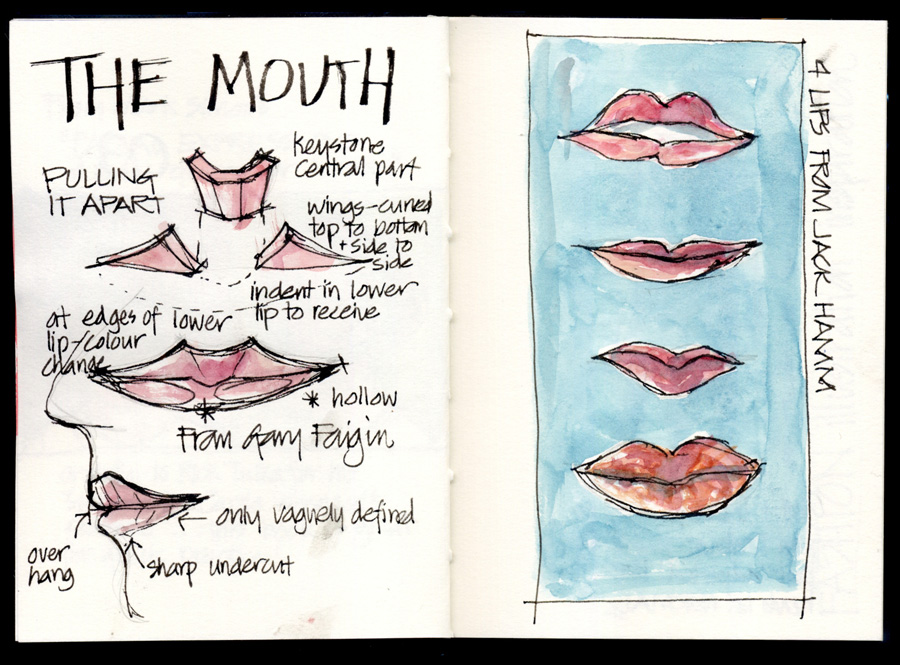 THE MOUTH
PULLING
IT APART
keystone
central part
wings-curved
top to bottom
+ side to
side
indent in lower
lip to receive
at edges of lower
lip-colour
change
* hollow
*
From Gary Faigin
only vaguely defined
over
hang
sharp undercut
4 LIPS FROM JACK HAMM